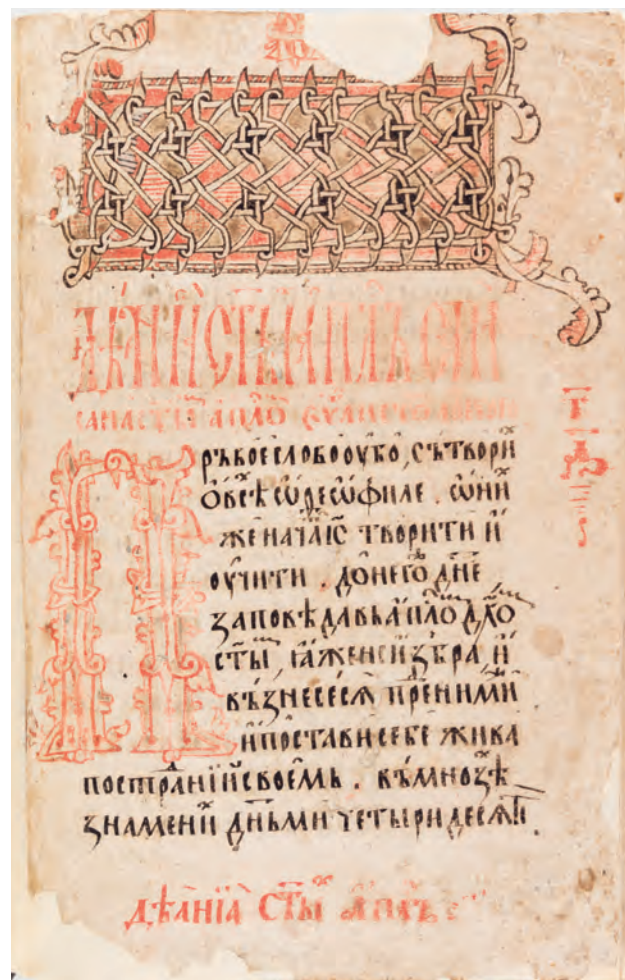 дѣанїи ст҃ы́хъ ап҃лъ спи
сана ст҃ыи ап҃ло
Пръвое слово оубо, сътвори
ѡ всѣ ѡ҆ ѳеѡфиле. ѡ ни
же нача і҃с творити и
оучити. до него дн҃е
заповѣдавь ап҃ло дх҃о
ст҃ы, ꙗже и зъбра, и
възнесесѧ прѣ ними
и постави себе жива
по страниі своемь. въ мноѕѣ
знамени дн҃ьми четыридесѧ
дѣанїа ст҃ы ап҃лъ